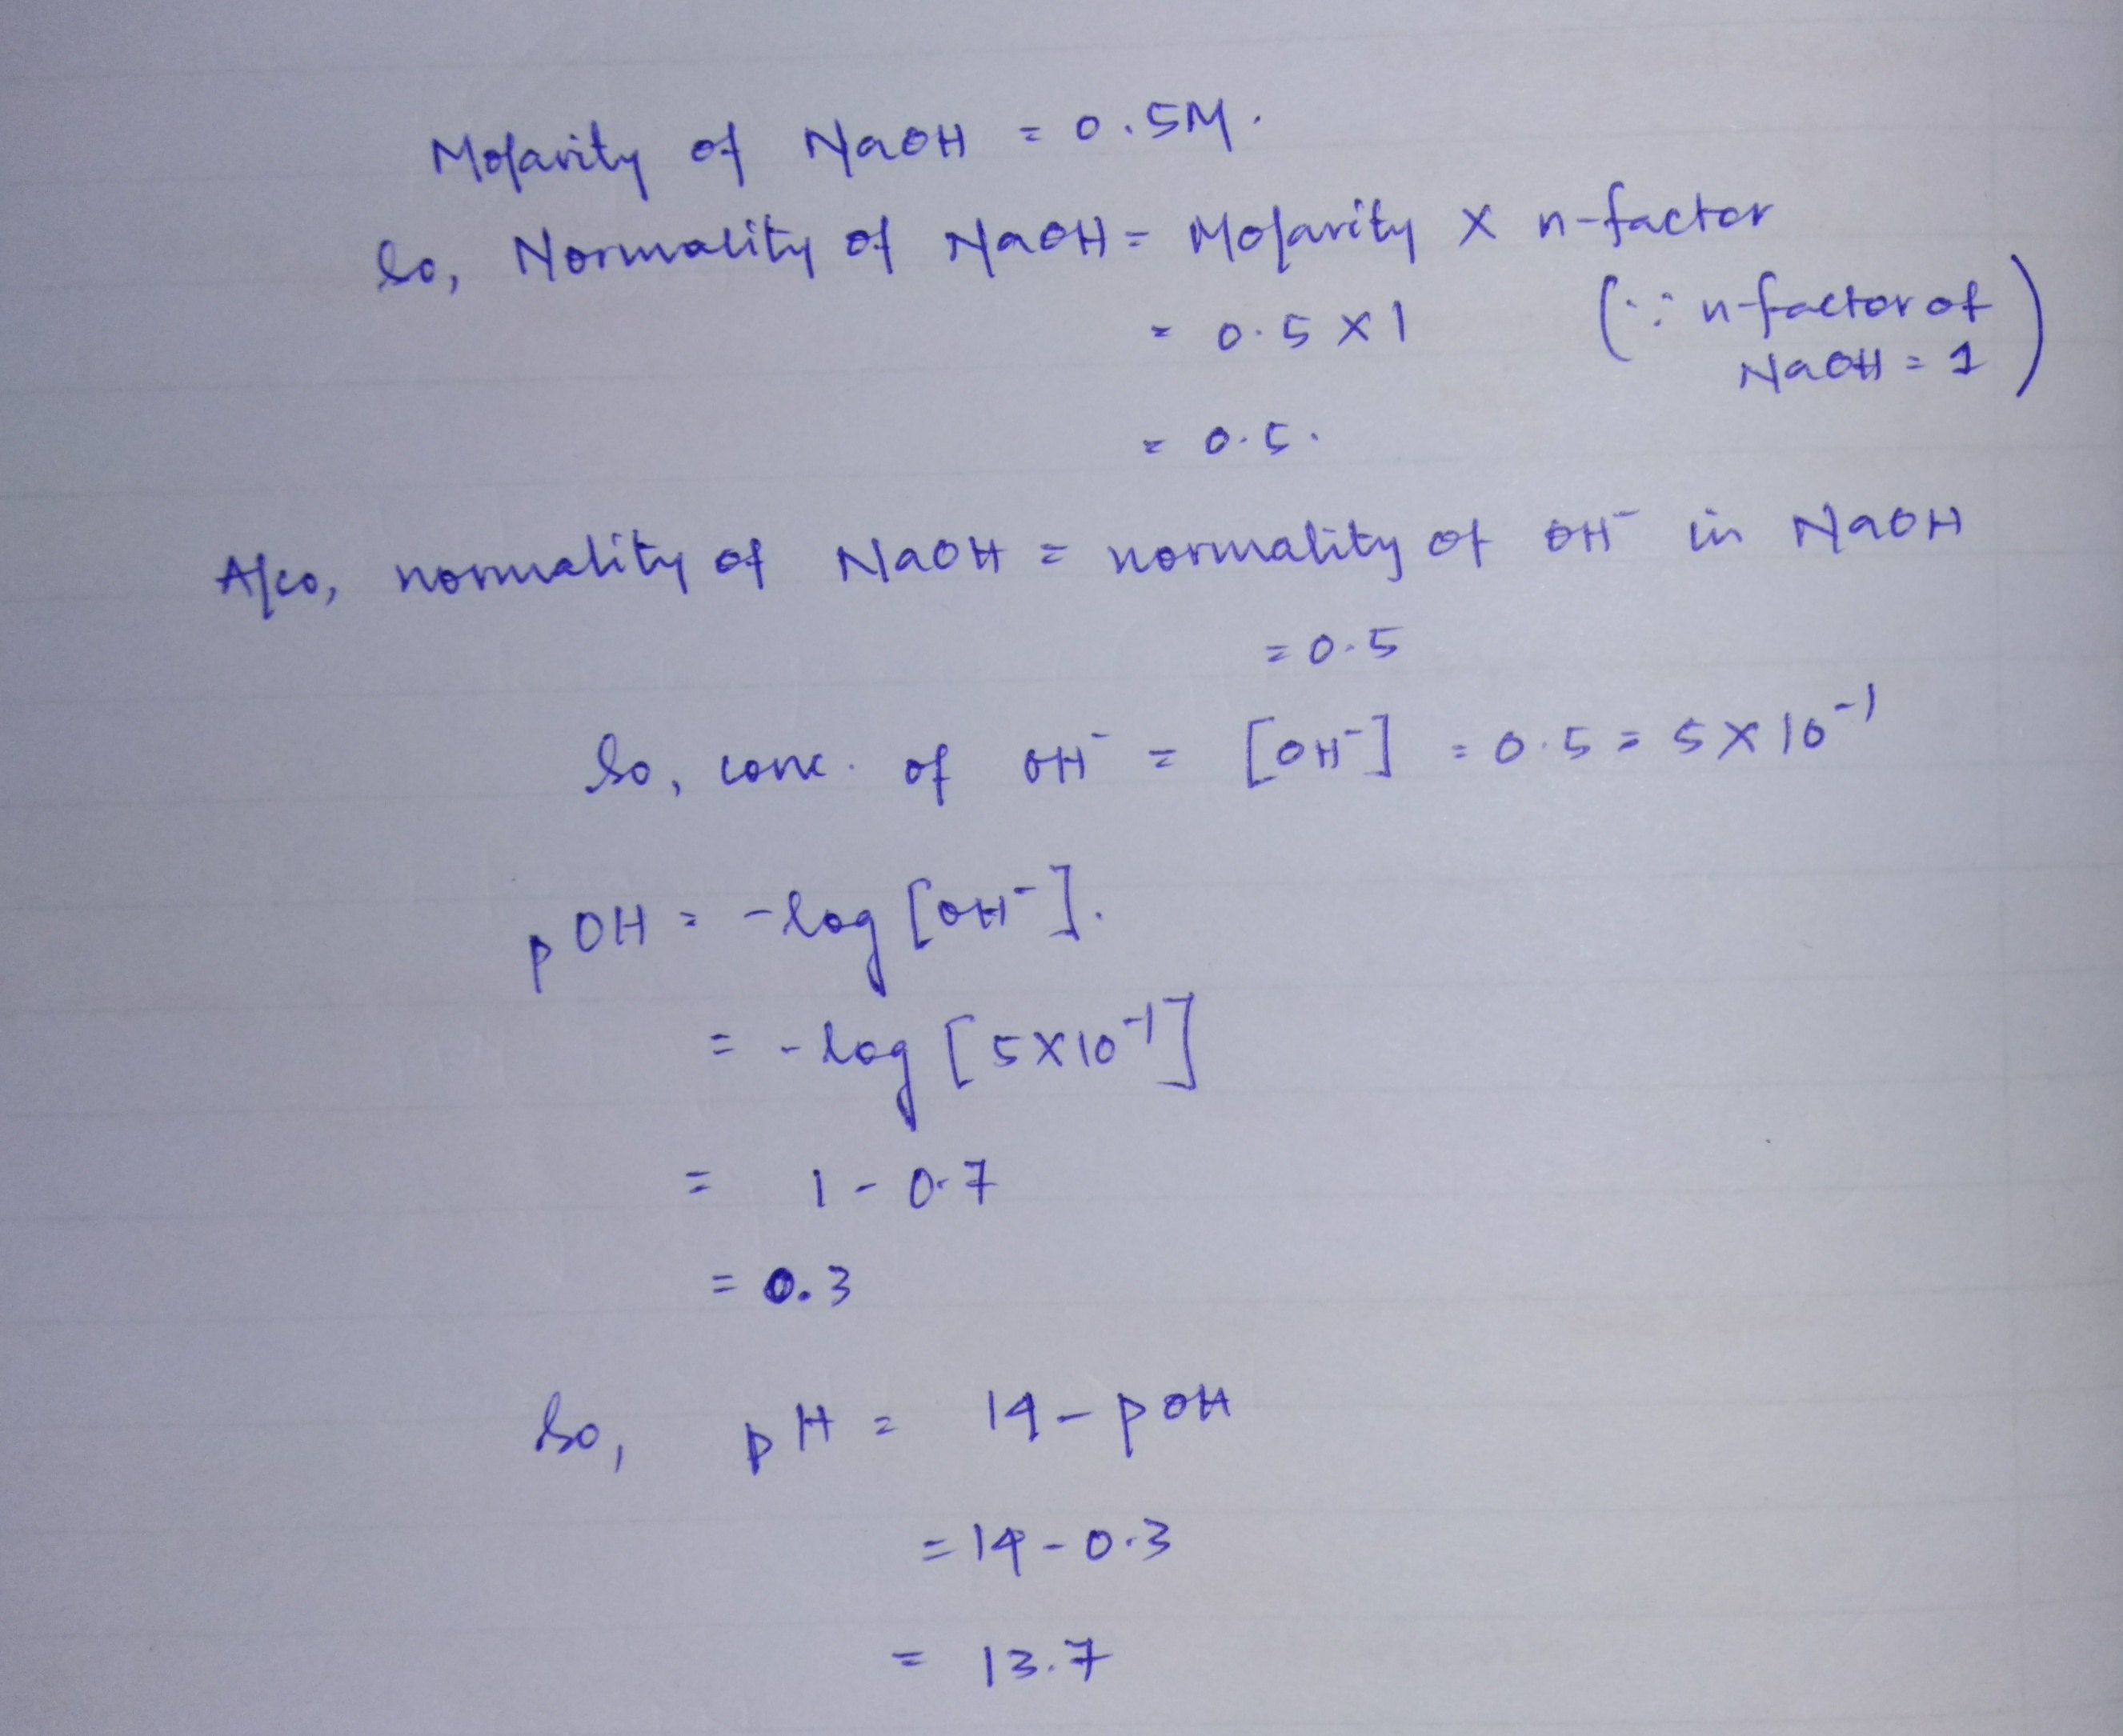 Molarity of NaOH = 0.5M.
So, Normality of NaOH = Molarity × n-factor
= 0.5 × 1 (∵ n-factor of NaOH = 1)
= 0.5.
Also, normality of NaOH = normality of OH⁻ in NaOH
= 0.5
So, conc. of OH⁻ = [OH⁻] = 0.5 = 5 × 10⁻¹
pOH = -log [OH⁻].
= -log [5×10⁻¹]
= 1 - 0.7
= 0.3
So, pH = 14 - pOH
= 14 - 0.3
= 13.7